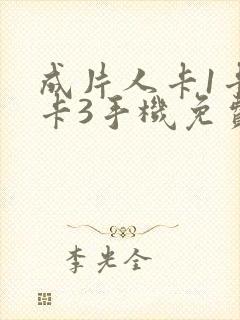 成片人卡1卡
卡3手機免費
李光全